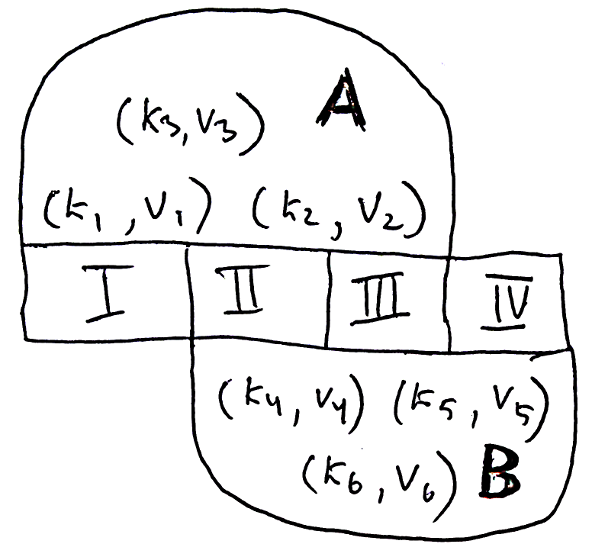 A
(k3, v3)
(k1, v1) (k2, v2)
I II III IV
(k4, v4) (k5, v5)
(k6, v6) B